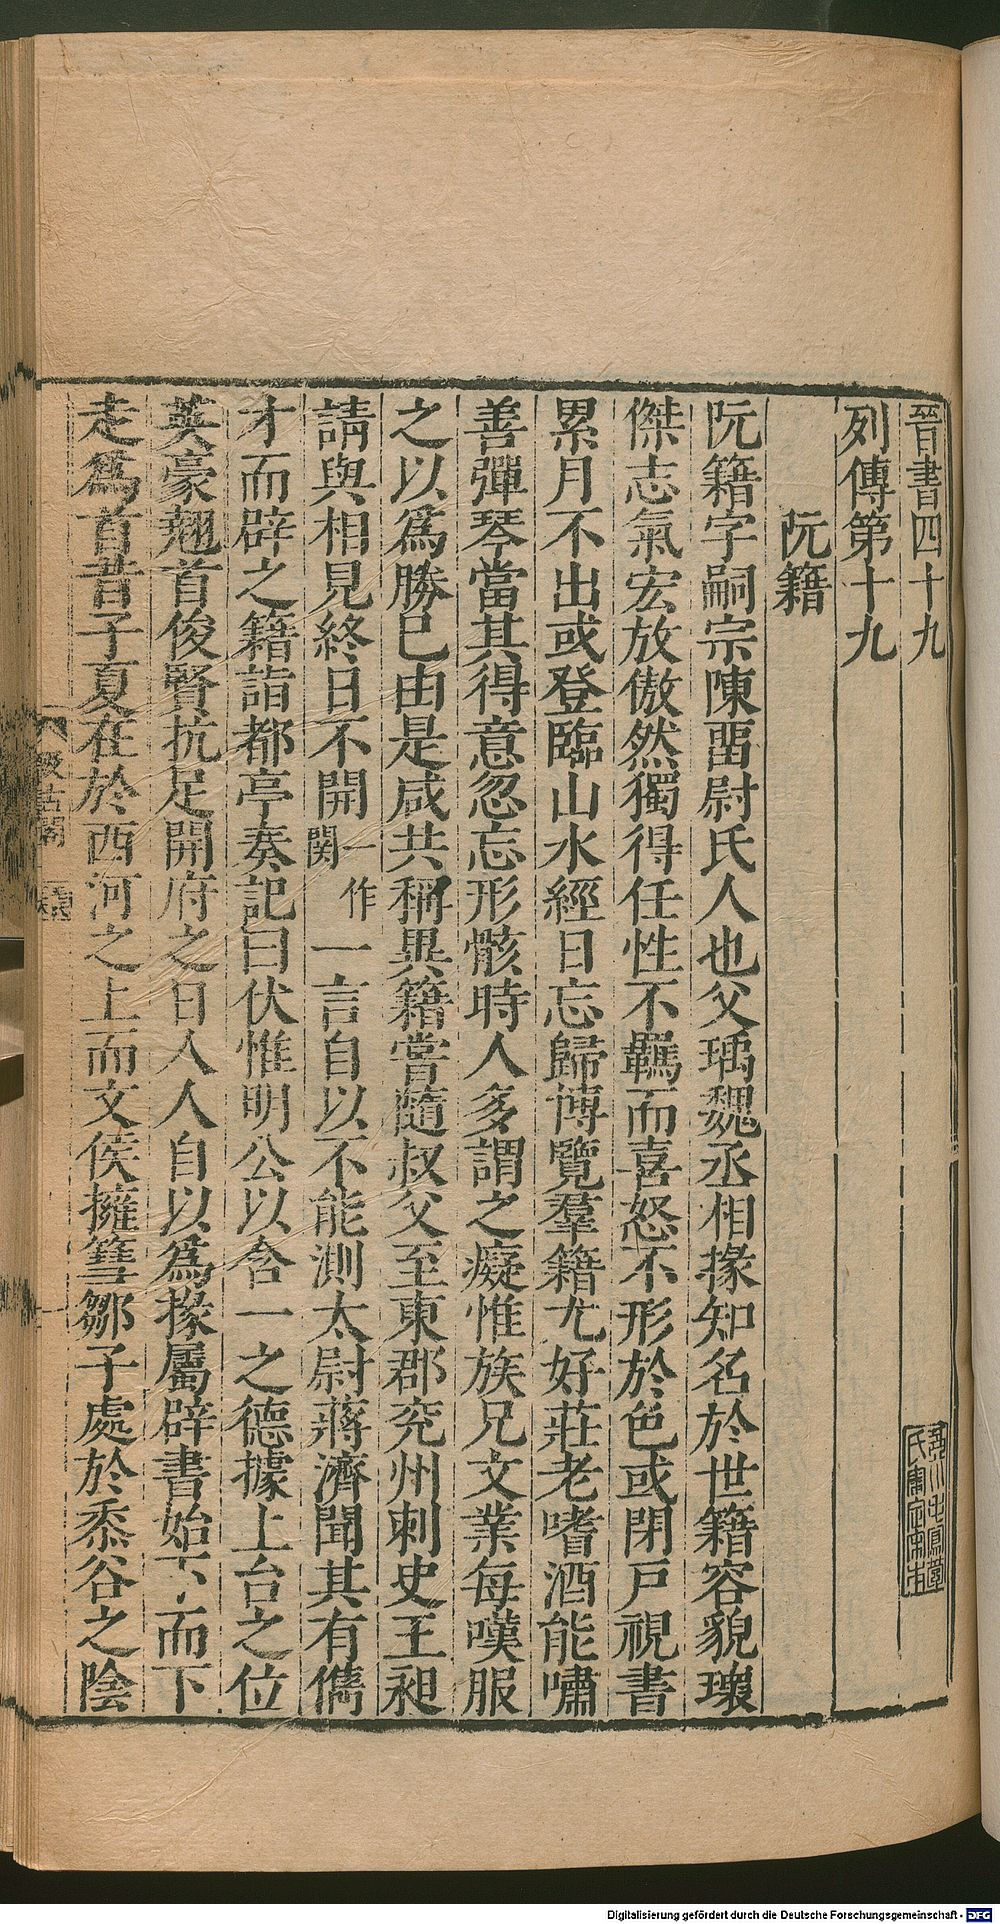 晉書四十九
列傳第十九
阮籍
阮籍字嗣宗陳畱尉氏人也父瑀魏丞相掾知名於世籍容貌瓌
傑志氣宏放傲然獨得任性不羈而喜怒不形於色或閉戸視書
累月不出或登臨山水經日忘歸博覽羣籍尤好莊老嗜酒能嘯
善彈琴當其得意忽忘形骸時人多謂之癡惟族兄文業每嘆服
之以爲勝已由是咸共稱異籍嘗隨叔父至東郡兖州刺史王昶
請與相見終日不開一作関一言自以不能測太尉蔣濟聞其有儁
才而辟之籍詣都亭奏記曰伏惟明公以含一之德據上台之位
英豪翹首俊賢抗足開府之日人人自以爲掾屬辟書始下而下
走爲首昔子夏在於西河之上而文侯擁篲鄒子處於黍谷之陰
汲古閣
Digitalisierung gefördert durch die Deutsche Forschungsgemeinschaft - DFG